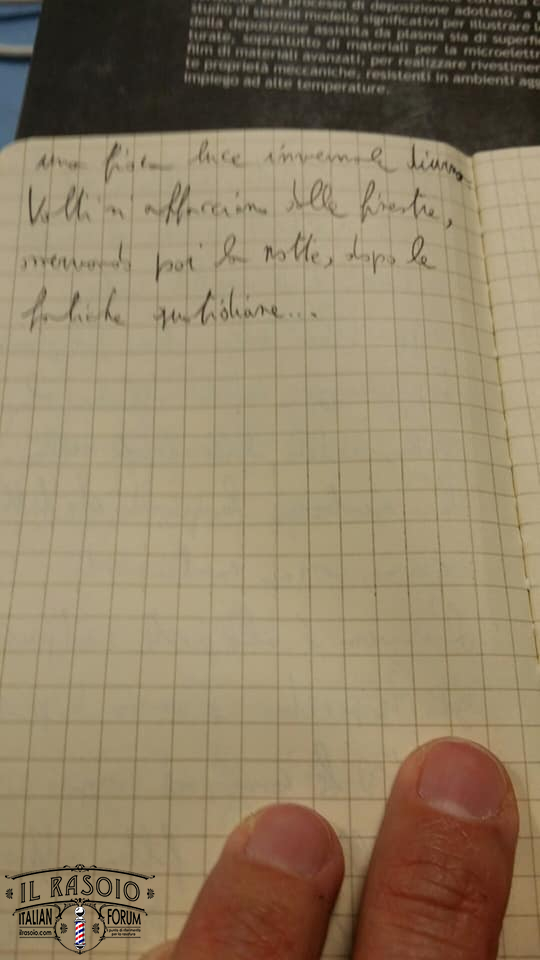 del processo di deposizione adottato, a
di sistemi modello significativi per illustrare
della deposizione assistita da plasma sia di superfi
turate, soprattutto di materiali per la microelettr
film di materiali avanzati, per realizzare rivestimen
le proprietà meccaniche, resistenti in ambienti agg
impiego ad alte temperature.
una fioca luce invernale diurna.
Volti si affacciano dalle finestre,
poi la notte, dopo le
fatiche quotidiane...
IL RASOIO
ITALIAN FORUM
ilrasoio.com
il punto di riferimento
per la rasatura